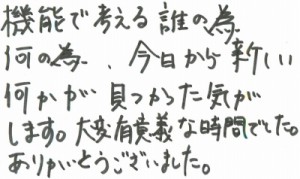 機能で考える誰の為
何の為、今日から新しい
何かが見つかった気が
します。大変有意義な時間でした。
ありがとうございました。